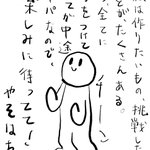 は作りたいもの、挑戦した
とがたくさんある。
全てに
をつけて
てが中途
パなので、
楽しみに待ってて!
やそはち